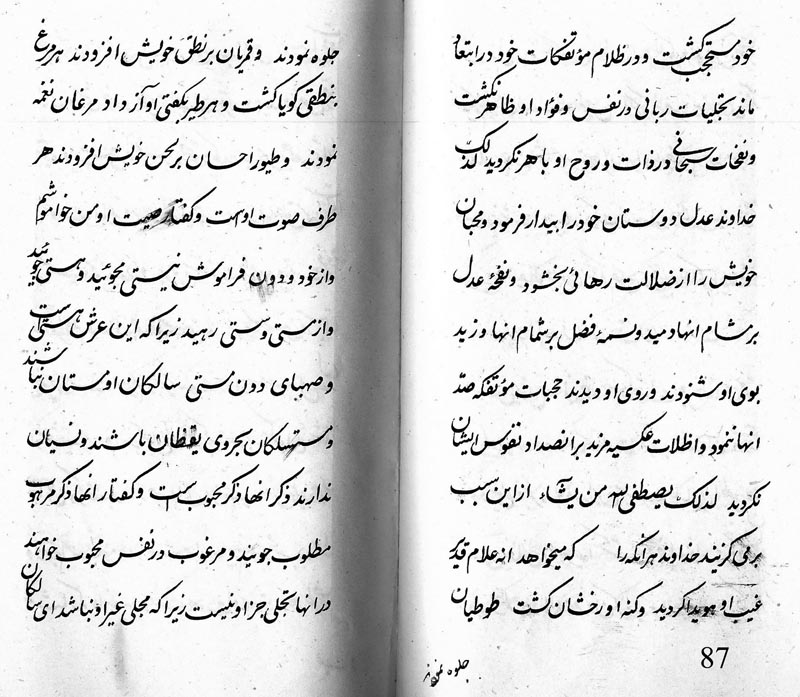 خود محتجب کشت و در ظلام مؤتفکات خود در ابتعاد
ماند تجلیات ربانی در نفس و فؤاد او ظاهر نکشت
و نفحات سبحانی در ذات و روح او باهر نکردید لذلک
خداوند عدل دوستان خود را بیدار فرمود و محبان
خویش را از ضلالت رهائی بخشود و نفحهٔ عدل
بر مشام انها دمید و نسمهٔ فضل بر شمام انها وزید
بوی او شنودند و روی او دیدند حجبات مؤتفکه صدّ
انها ننمود و اظلات عکسیه مزید بر انصداد نفوس ایشان
نکردید لذلک یصطفی الله من یشآء از این سبب
بر می کزیند خداوند هر انکه را که میخواهد انه علام قدیر
غیب او هویدا کردید و کنه او رخشان کشت طوطیان
جلوه نمودند
87
جلوه نمودند و قمریان بر نطق خویش افزودند هر مرغ
بنطقی کویا کشت و هر طیر بکفتی اواز داد مرغان نغمه
نمودند و طیور احسان بر لحن خویش افزودند هر
طرف صوت اوست و کفتار صیت او من خواموشم
و از خود و دون فراموش نیستی مجوئید و هستی جوئید
و از مستی و سستی رهید زیرا که این عرش هستی است
و صهبای دون مستی سالکان او مستان نباشند
و مستهلکان بجروی یقظان باشند و نسیان
ندارند ذکر انها ذکر محبوب است و کفتار انها ذکر مرهوب
مطلوب جویند و مرغوب در نفس محبوب خواهند
در انها تجلی جز او نیست زیرا که مجلی غیر او نباشد ای سالکان